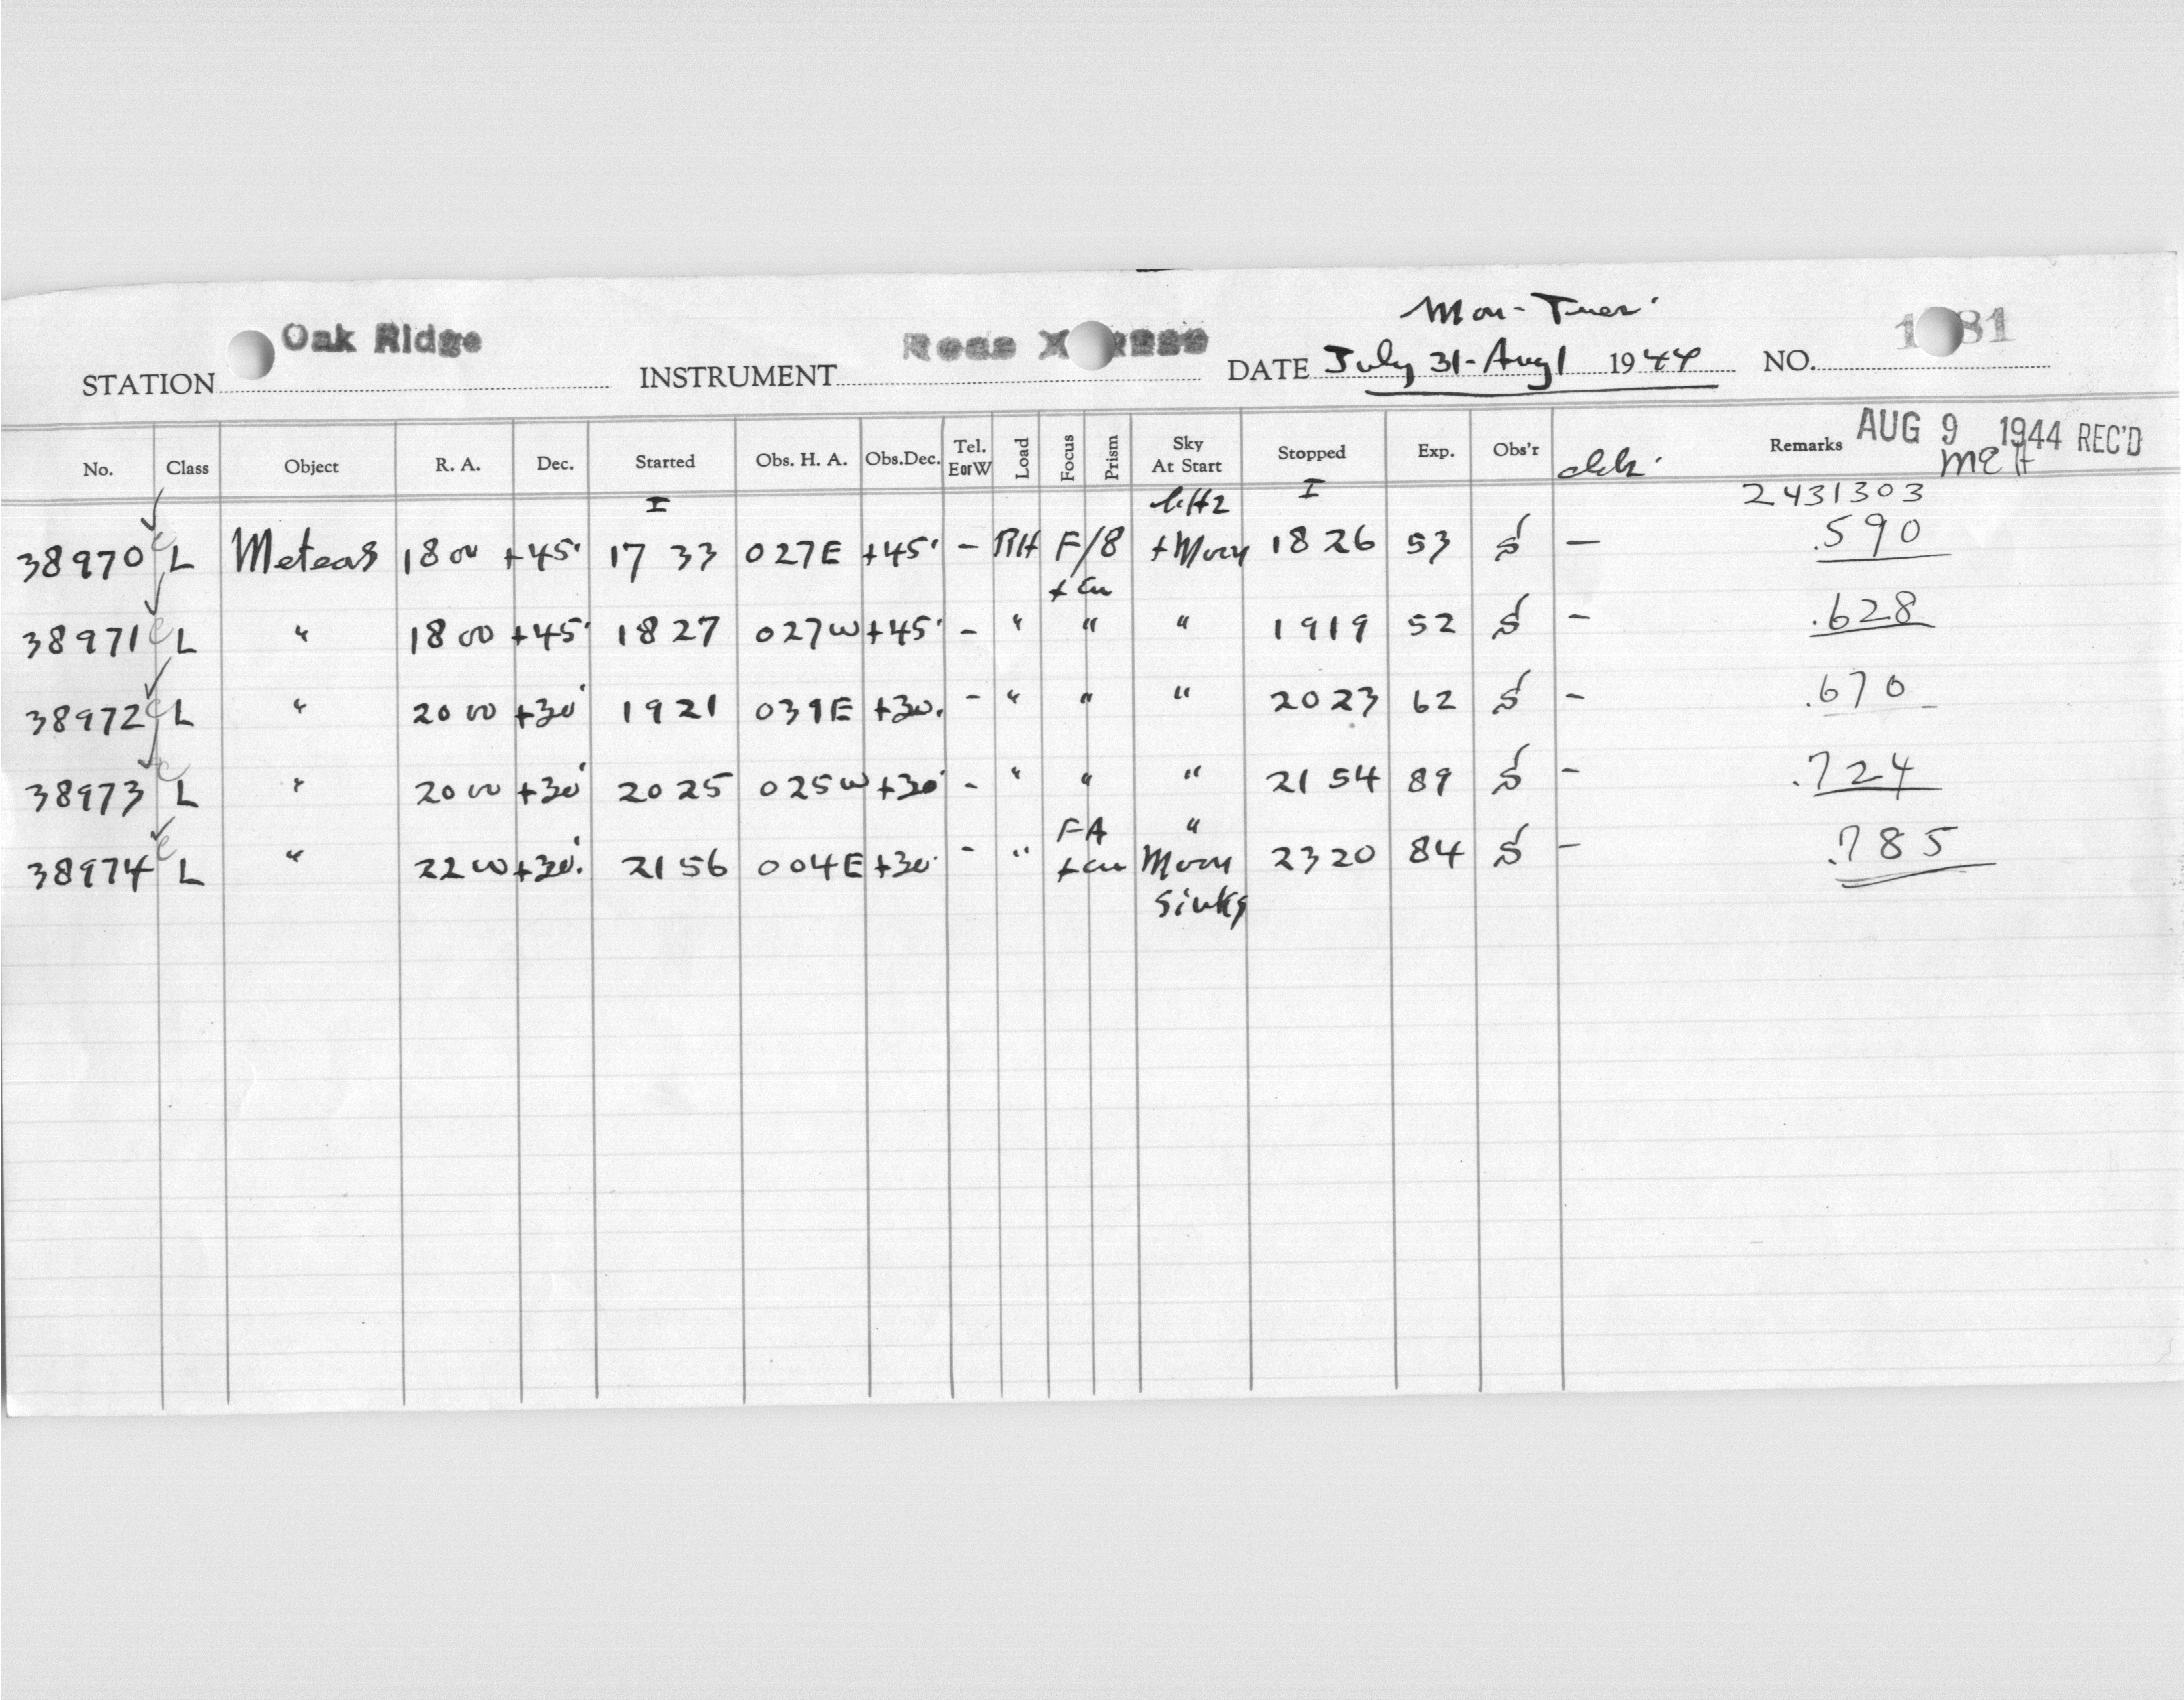 Mon-Tues.
Oak Ridge
STATION INSTRUMENT Ross X DATE July 31-Aug 1 1944 NO. 1 81
AUG 9 1944 REC'D
No. Class Object R. A. Dec. Started Obs. H. A. Obs.Dec. Tel. EorW Load Focus Prism Sky At Start Stopped Exp. Obs'r clk. Remarks
I I 2431303
38970 L Meteors 18 00 +45° 17 33 027E +45° - RH F/8 + Moon 18 26 53 S — .590
38971 L " 18 00 +45° 18 27 027W +45° - " " " 19 19 52 S - .628
38972 L " 20 00 +30° 19 21 039E +30° - " " " 20 23 62 S - .670
38973 L " 20 00 +30° 20 25 025W +30° - " " " 21 54 89 S - .724
FA "
38974 L " 22 00 +30° 21 56 004E +30° - " Moon 23 20 84 S - .785
Sinks